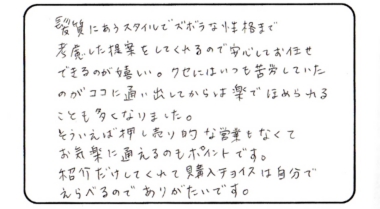 髪質にあうスタイルでズボラな性格まで
考慮した提案をしてくれるので安心してお任せ
できるのが嬉しい。クセにはいつも苦労していた
のがココに通い出してからは楽でほめられる
ことも多くなりました。
そういえば押し売り的な営業もなくて
お気楽に通えるのもポイントです。
紹介だけしてくれて購入チョイスは自分で
えらべるのでありがたいです。